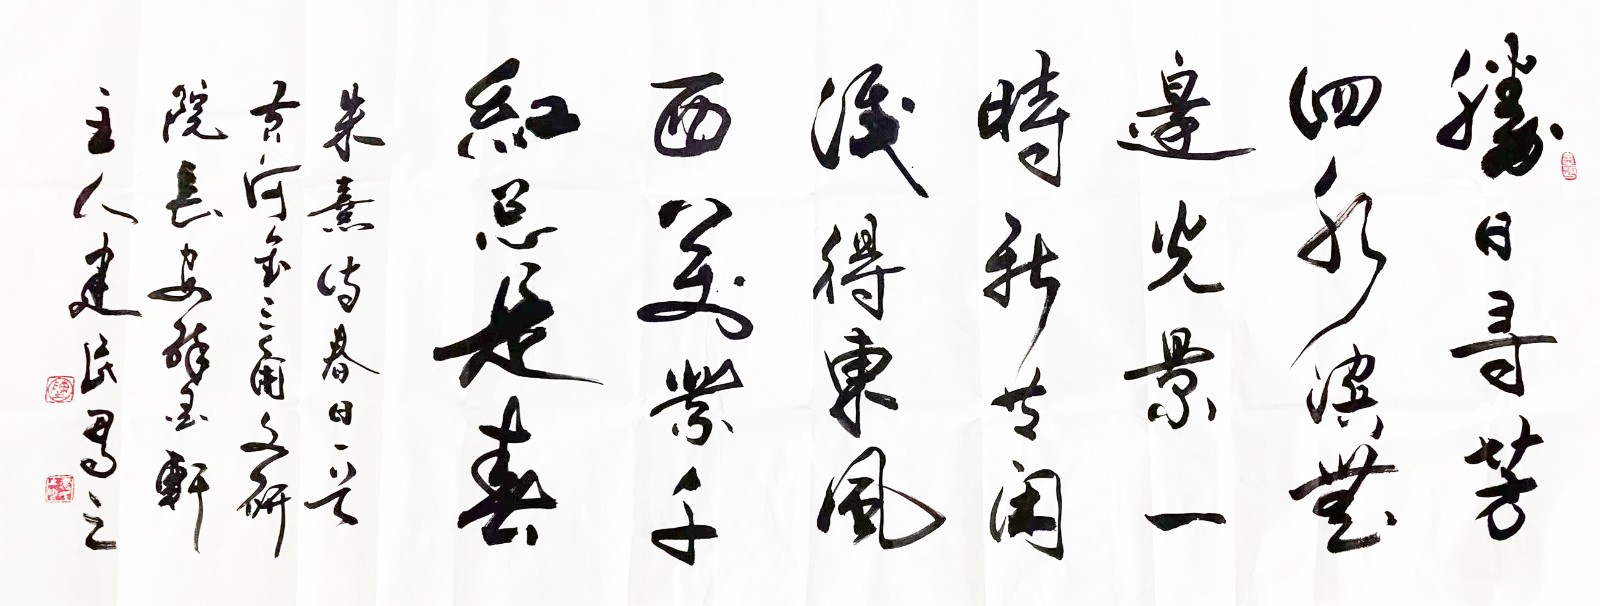 勝日寻芳
泗水濱無
邊光景一
時新等闲
識得東風
面萬紫千
紅总是春
朱熹詩春日一首
黄河金三角文研
院長安醉墨軒
主人建民書之